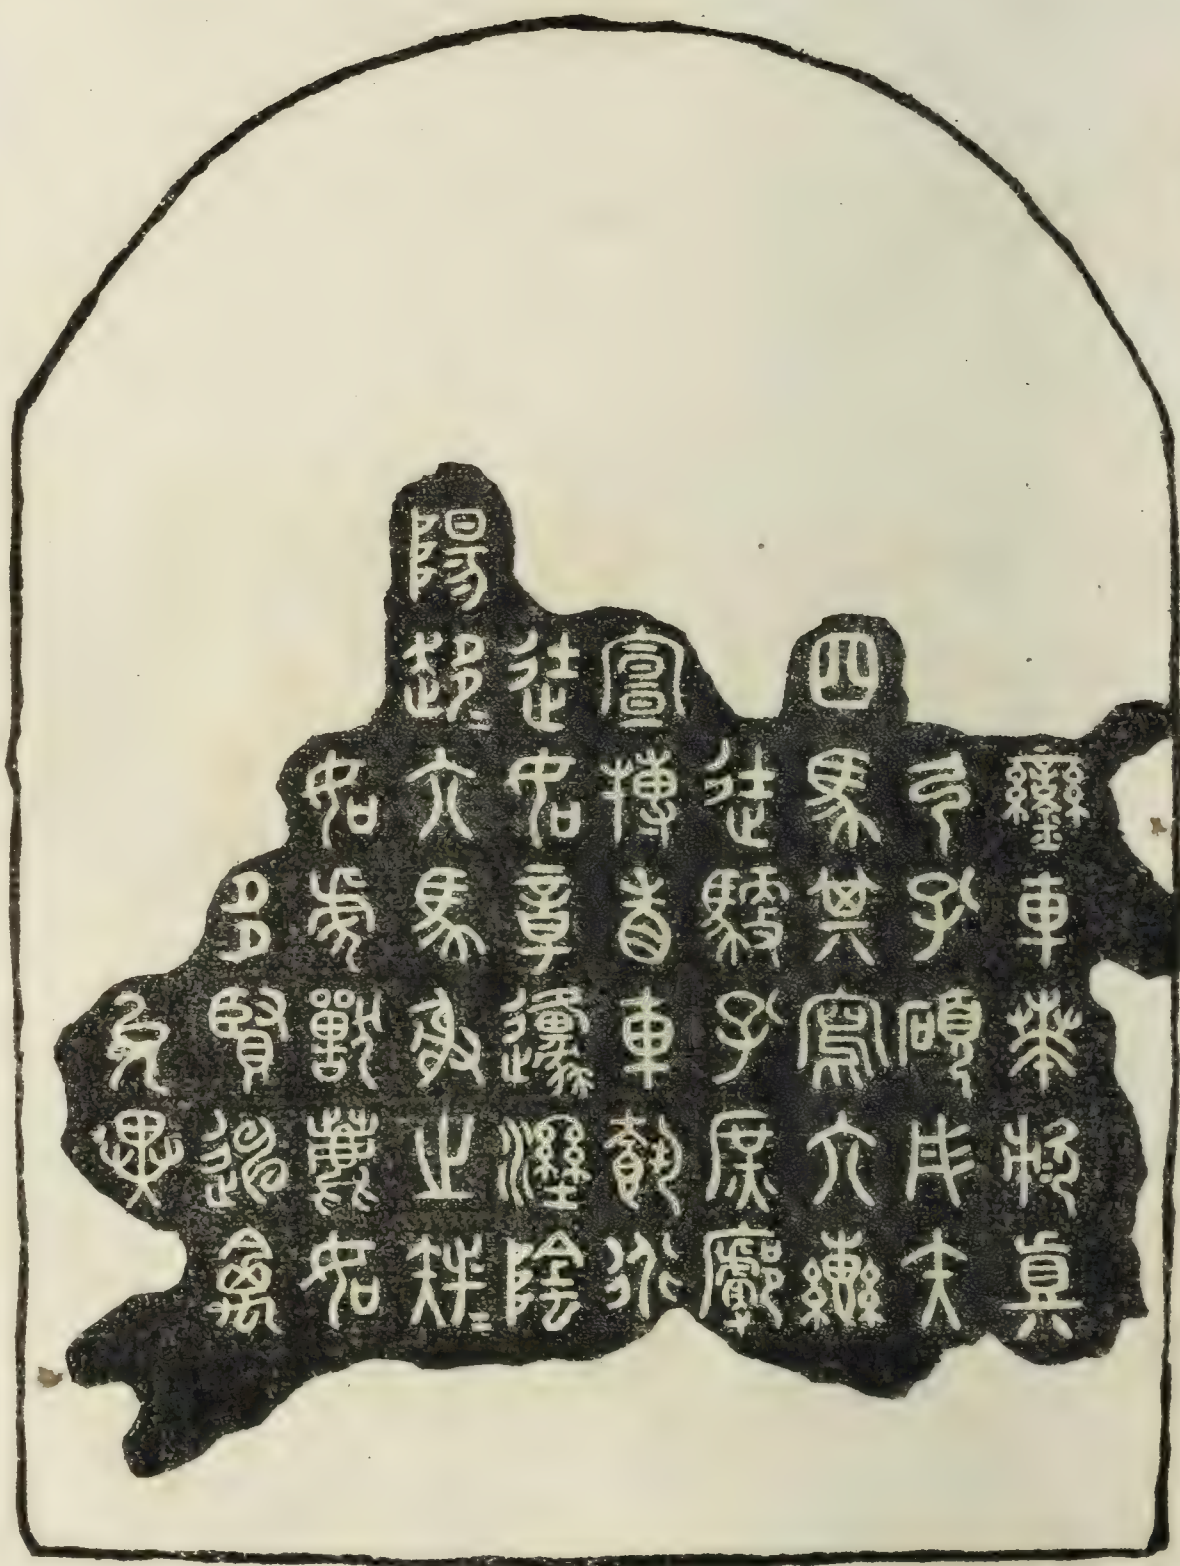 鑾車𠦪欶真
弓孔碩彤矢
四馬其寫六轡
徒馭孔庶鄜
宣搏眚車衍
徒如章邍溼陰
陽趍₌六馬射之
如虎獸鹿如
多賢迪禽
允異